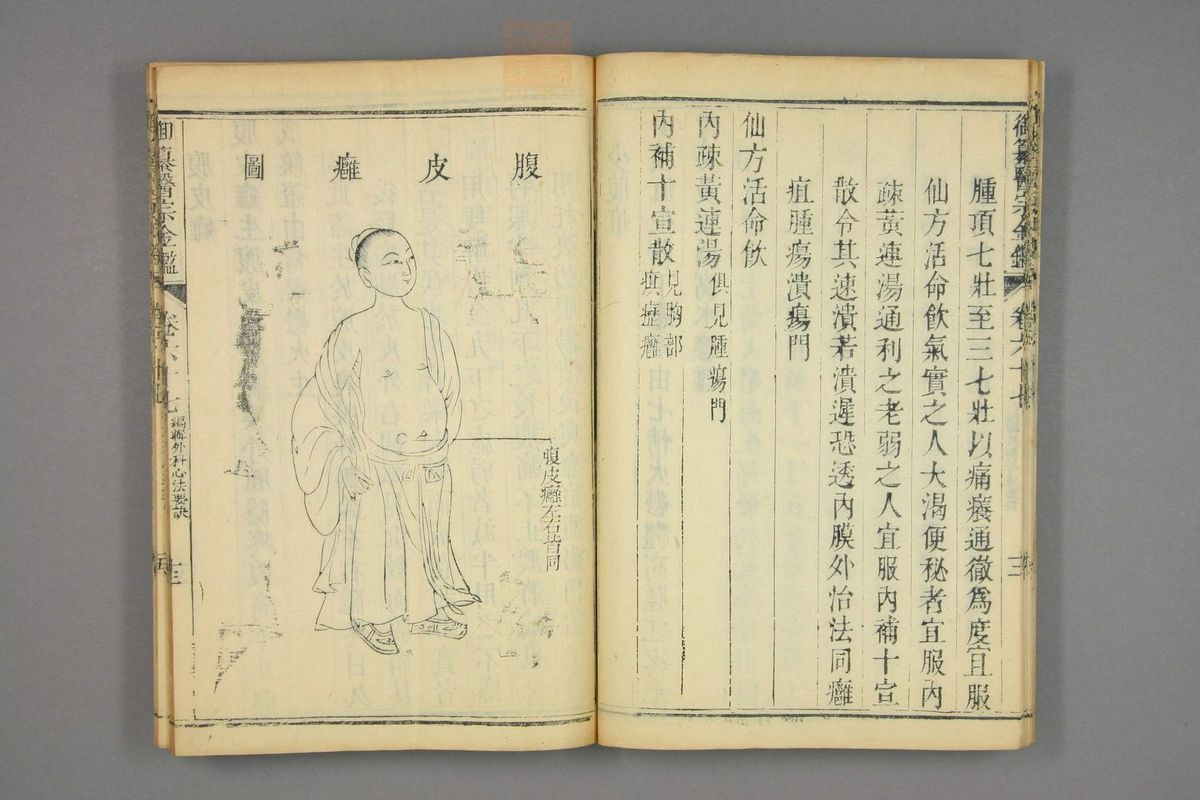 腫頂七壯至三七壯以痛癢通徹爲度宜服
仙方活命飲氣實之人大渴便秘者宜服內
疎黃連湯通利之老弱之人宜服內補十宣
散令其速潰若潰遲恐透內膜外治法同癰
疽腫瘍潰瘍門
仙方活命飲
內疎黃連湯俱見腫瘍門
內補十宣散見胸部
癰
腹皮癰圖
腹皮癰左右皆同
御纂醫宗金鑑
編輯外科心法要訣